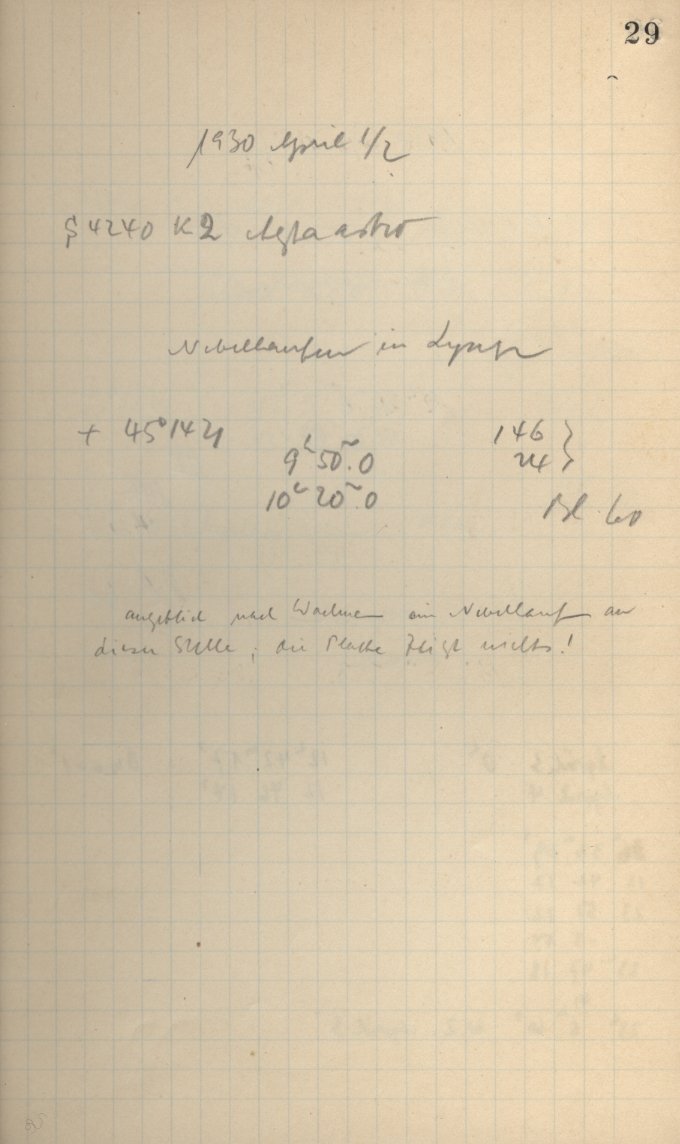 29
1930 April 1/2
S 4240 K2 Agfa astro
Nebelhaufen in Lynx
+ 45° 1421
146 }
9h 50m.0
24 }
10h 20m.0
Bl. 60
angeblich nach Wachmann ein Nebelhauf an
dieser Stelle, die Platte zeigt nichts!